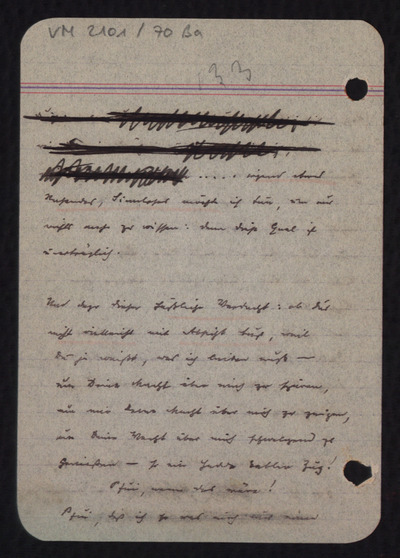 VM 2101 / 70 Ba
133
..... irgend etwas
Rasendes, Sinnloses möchte ich tun, um nur
nichts mehr zu wissen: denn diese Qual ist
unerträglich.
Und dazu dieser häßliche Verdacht: ob Du
nicht vielleicht mit Absicht tust, weil
Du ja weißt, was ich leiden muß —
um Deine Macht über mich zu spüren,
um mir Deine Macht über mich zu zeigen,
um Deine Macht über mich schwelgend zu
genießen — so ein
Pfui, wenn das wäre!
Pfui, daß ich so was auch nur